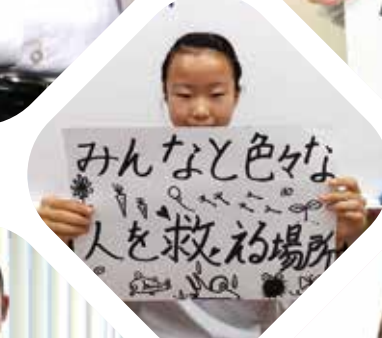 みんなと色々な
人を救える場所